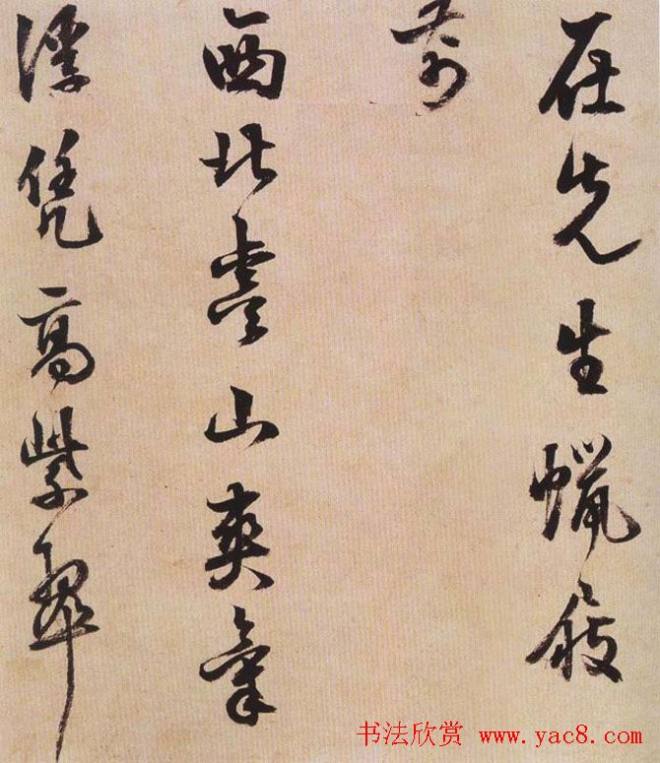 在先生蠟屐
前
西北山爽氣
浮凭高紫翠
书法欣赏 www.yac8.com